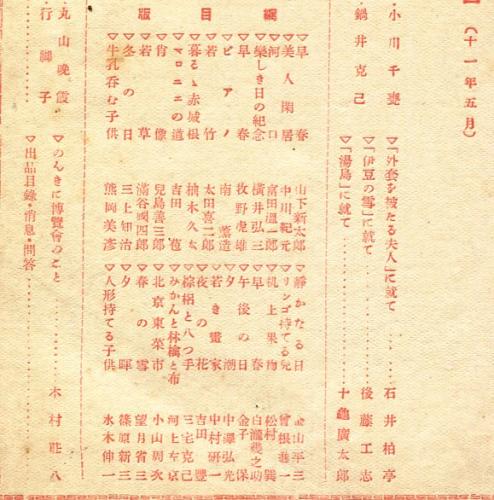 (十一年五月)
小川千甕
▽「外套を被たる夫人」に就て……石井柏亭
鍋井克己
▽「伊豆の雪」に就て……後藤工志
▽「湯島」に就て……十龜廣太郎
目版
▽早春 山下新太郎 ▽靜かなる日 金山平三
▽美人閑居 中川紀元 ▽リンゴ持てる兒 曾根
▽河口 富田溫一郎 ▽机上果物 松村巽
▽樂しき日の紀念 横井弘三 ▽早春 白瀧幾之助
▽早春 牧野虎雄 ▽午後の日 金子保
▽ピアノ 南薫造 ▽夕潮 中澤弘光
▽若竹 太田喜二郎 ▽若き畫家 中村研一
▽暮るゝ赤城根 柚木久太 ▽夜の花 吉田豐
▽マロニエの道 吉田苞 ▽棕梠と八つ手 三宅克己
▽肖像 兒島善三郎 ▽みかんと林檎と布 河上左京
▽若草 滿谷國四郎 ▽北京東菜市 小山周次
▽冬の日 三上知治 ▽春の雪 望月省三
▽牛乳呑む子供 熊岡美彦 ▽夕暉 篠原新三
▽人形持てる子供 水木伸一
丸山晩霞
▽のんきに博覽會のこと……木村莊八
行脚子
▽出品目錄・消息・問答……